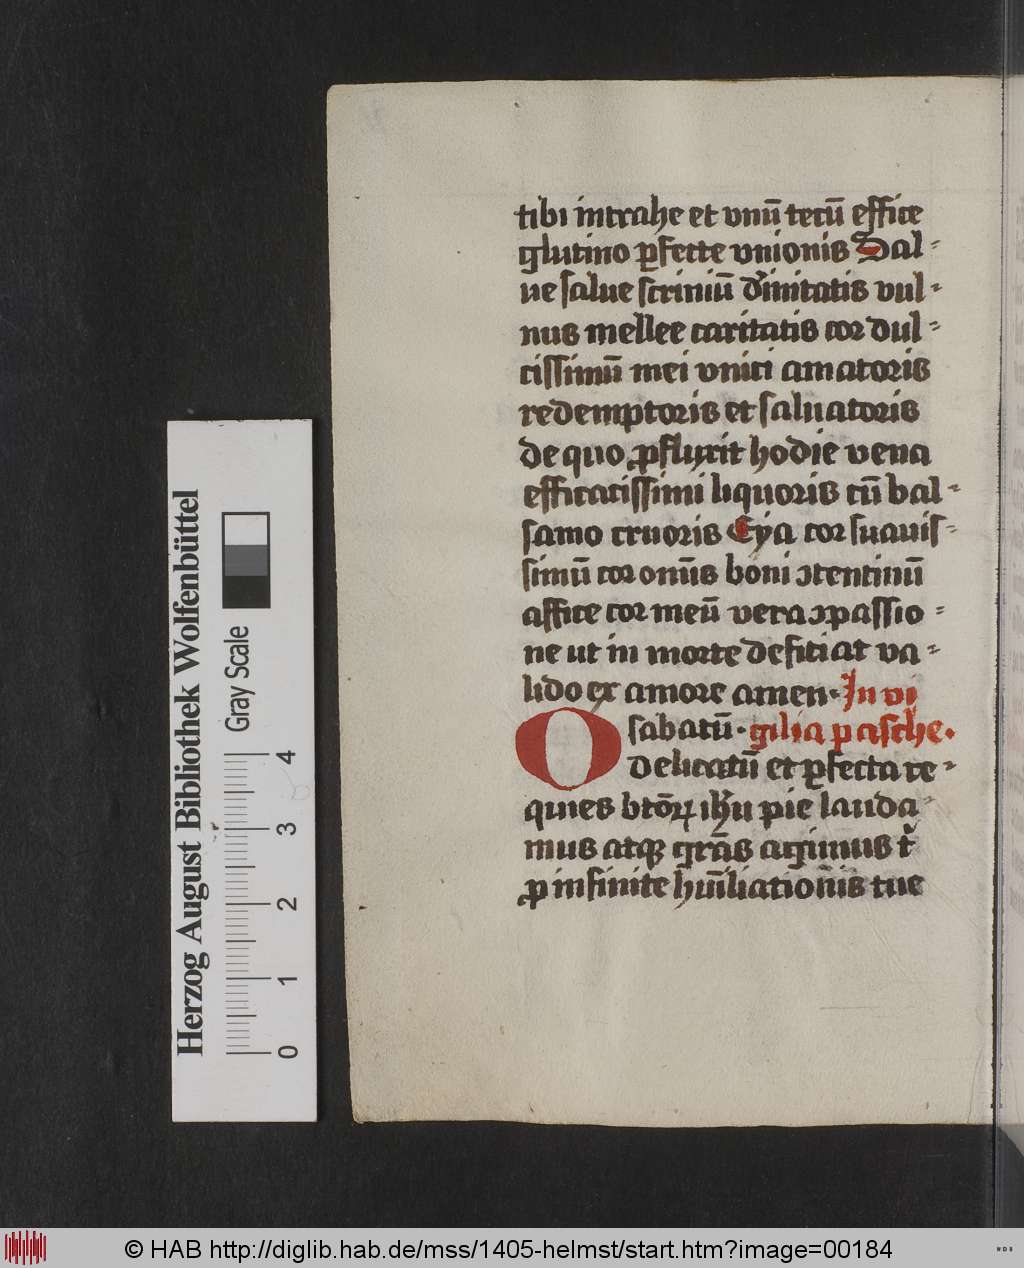 tibi intrahe et vnū tecū effice
glutino ꝑfecte vnionis Sal⸗
ue salue scriniū diuinitatis vul⸗
nus mellee caritatis cor dul⸗
cissimū mei vnici amatoris
redemptoris et saluatoris
de quo ꝓfluxit hodie vena
efficacissimi liquoris cū bal⸗
samo cruoris Eya cor suauis⸗
simū cor onūs boni ↄtentiuū
affice cor meū vera ↄpassio⸗
ne ut in morte deficiat va⸗
lido ex amore amen · In vi
O sabatū · gilia pasche ·
delicatū et ꝑfecta re⸗
quies btōꝝ ihū pie lauda⸗
mus atqꝫ grās agimus tⁱ
ꝓ infinite hūiliationis tue
Herzog August Bibliothek Wolfenbüttel
Gray Scale
0 1 2 3 4
© HAB http://diglib.hab.de/mss/1405-helmst/start.htm?image=00184